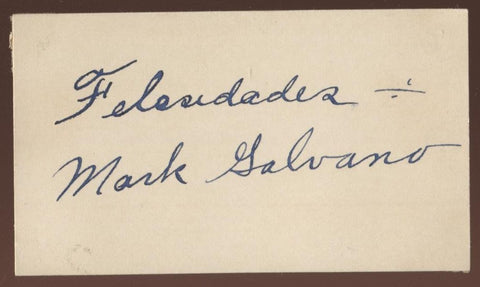 Felesidades ÷
Mark Galvano